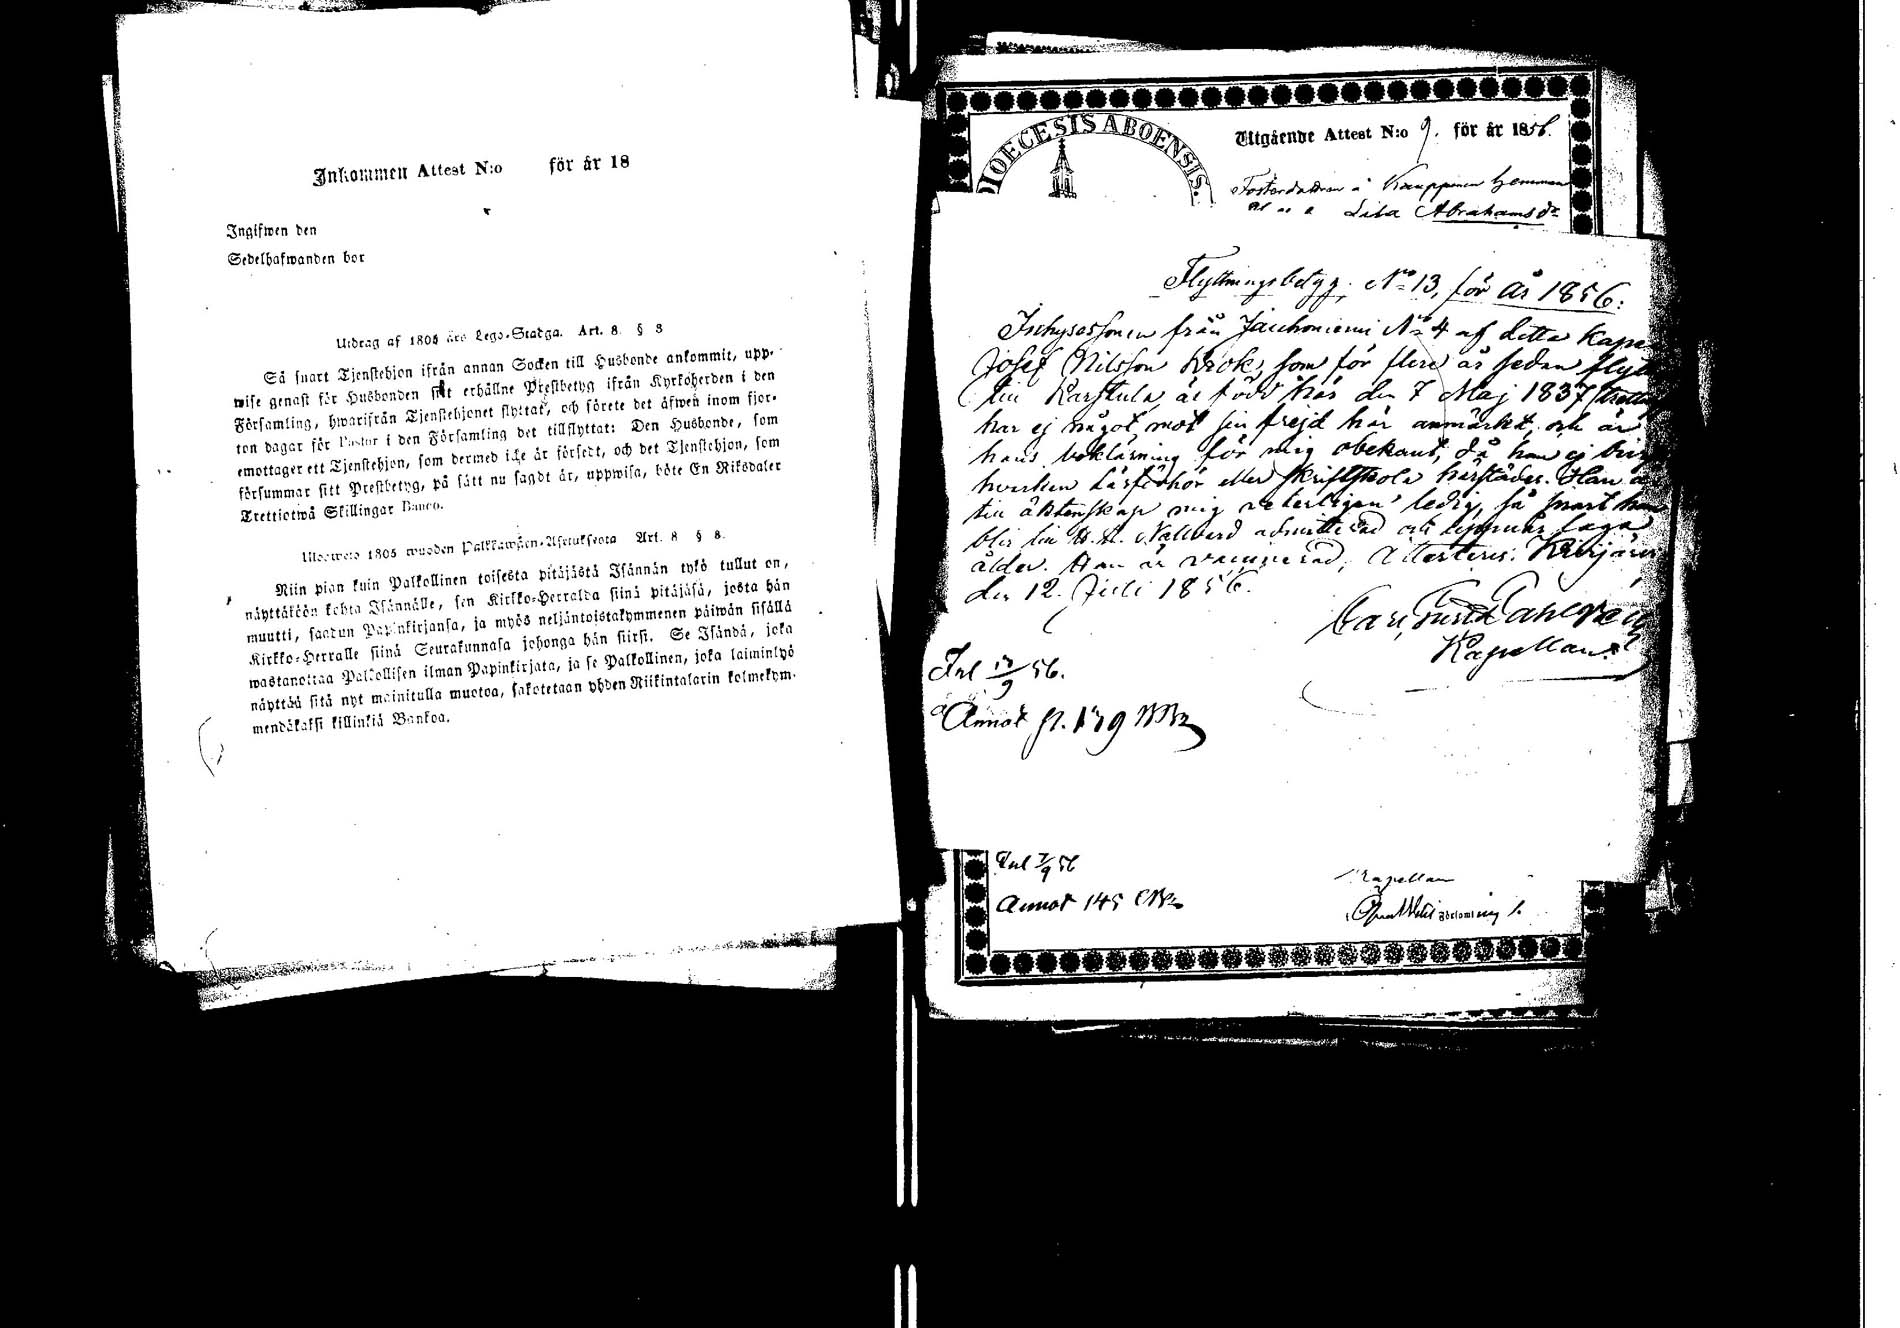 Inkommen Attest N:o för år 18
Ingifwen den
Sedelhafwanden bor
Utdrag af 1805 års Lego-Stadga. Art. 8 § 8
Så snart Tjenstehjon ifrån annan Socken till Husbonde ankommit, upp-
wise genast för Husbonden sitt erhållne Prestbetyg ifrån Kyrkoherden i den
Församling, hwarifrån Tjenstehjonet flyttat, och förete det äfwen inom fjor-
ton dagar för Pastor i den Församling det tillflyttat: Den Husbonde, som
emottager ett Tjenstehjon, som dermed icke är försedt, och det Tjenstehjon, som
försummar sitt Prestbetyg, på sätt nu sagdt är, uppwisa, böte En Riksdaler
Trettiotwå Skillingar Banco.
Ulosweto 1805 wuoden Palkkawäen-Asetuksesta Art. 8 § 8.
Niin pian kuin Palkollinen toisesta pitäjästä Isännän tykö tullut on,
näyttäköön kohta Isännälle, sen Kirkko-Herralda siinä pitäjäsä, josta hän
muutti, saadun Papinkirjansa, ja myös neljäntoistakymmenen päiwän sisällä
Kirkko-Herralle siinä Seurakunnasa johonga hän siirsi. Se Isändä, joka
wastanottaa Palkollisen ilman Papinkirjata, ja se Palkollinen, joka laiminlyö
näyttää sitä nyt mainitulla muotoa, sakotetaan yhden Riikintalarin kolmekym-
mendäkaksi killinkiä Bankoa.
DIOECESIS ABOENSIS.
Utgående Attest N:o 9. för år 1856.
Fosterdottren å Kauppinen hemman
Lisa Abrahamsdr
Flyttningsbetyg. No 13, för år 1856:
från No 4 af detta
Josef Nilsson Krok, som för flere år sedan
till Karstula, är född här den 7 Maj 1837
har ej något mot sin frejd här anmärkt, och är
hans boklärning för mig obekant, då han ej
hvarken Läsförhör eller skriftskola härstädes. Han
till äktenskap mig veterligen ledig, så snart han
blir till H. H. Nattvard admitterad och uppnår laga
ålder. Han är vaccinerad, Attesteras.
den 12. Juli 1856.
Kapellan.
Inl 13/9 56.
Annot p. 179
Inl 7/9 56
Annot 145
Kapellan
Församling